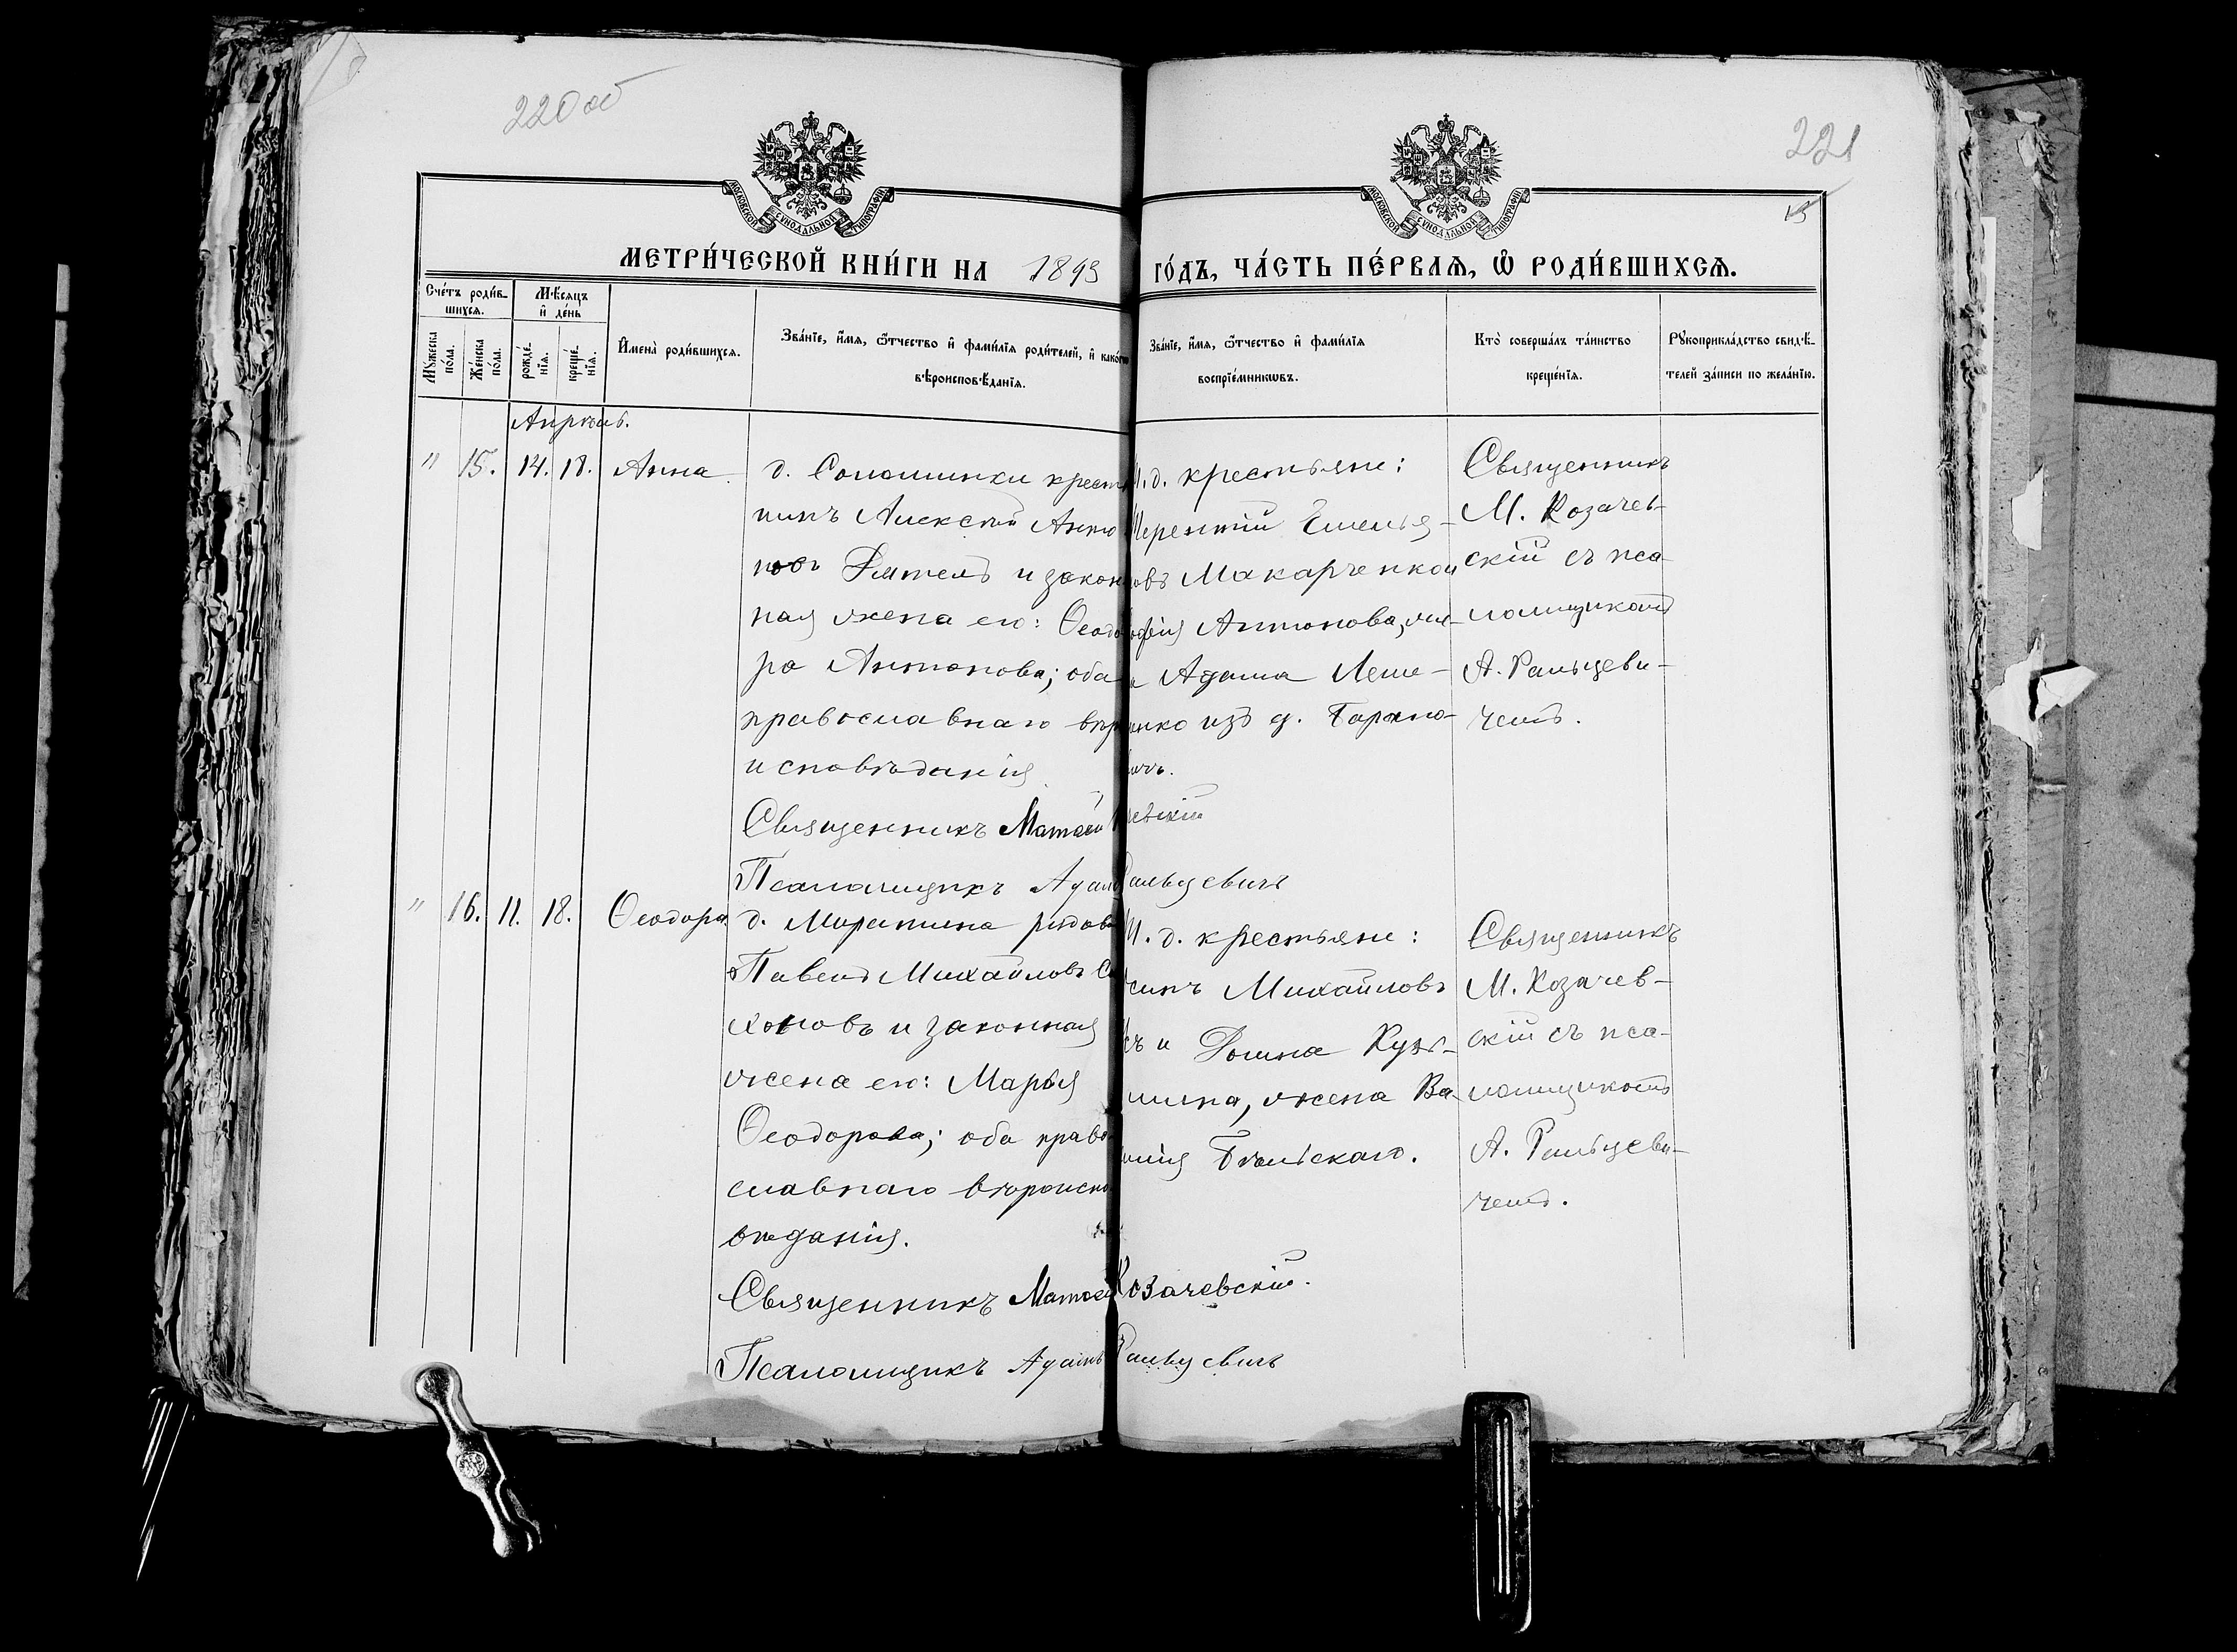 220 об
221
15
МОСКОВСКОЙ СѴНОДАЛЬНОЙ ТИПОГРАФІИ
МОСКОВСКОЙ СѴНОДАЛЬНОЙ ТИПОГРАФІИ
МЕТРИ́ЧЕСКОЙ КНИ́ГИ НА 1893 ГО́ДЪ, ЧА́СТЬ ПЕ́РВАѦ, Ѡ҆ РОДИ́ВШИХСѦ.
Сче́тъ роди́в-
шихсѧ.
Мѣ́сѧцъ
и҆ де́нь
Мꙋ́жеска
по́ла.
Же́нска
по́ла.
рожде́-
нїѧ.
креще́-
нїѧ.
И҆мена̀ роди́вшихсѧ.
Зва́нїе, и҆́мѧ, ѻ҆́тчество и҆ фами́лїѧ роди́телей, и҆ како́гѡ
вѣроисповѣ́данїѧ.
Зва́нїе, и҆́мѧ, ѻ҆́тчество и҆ фами́лїѧ
воспрїе́мникѡвъ.
Кто̀ соверша́лъ та́инство
креще́нїѧ.
Рꙋкоприкла́дство свидѣ́-
телей за́писи по жела́нїю.
Апрѣль.
" 15. 14. 18. Анна
д. Соломинки крестья
нинъ Алексѣй Анто
новъ и закон
ная жена его: Ѳеодо
ра Антонова; оба
православнаго вѣро
исповѣданія
Священникъ Матѳей
Псаломщикъ Адамъ
д. крестьяне:
Терентій Емелья-
овъ Макарченко и
Антонова, же-
а Адама Леме-
енко изъ д.
вскій
Ральцевичъ
Священникъ
М. Козачев-
скій съ пса-
ломщикомъ
А. Ральцеви-
чемъ.
" 16. 11. 18. Ѳеодора.
д. рядово
Павелъ Михайловъ
и законная
жена его: Марья
Ѳеодорова; оба право
славнаго вѣроиспо
вѣданія.
Священникъ Матѳей Козачевскій.
Псаломщикъ Адамъ Ральцевичъ
д. крестьяне:
Михайловъ
и Домна Кузь-
мина, жена Ва-
илія Бѣльскаго.
Священникъ
М. Козачев-
скій съ пса-
ломщикомъ
А. Ральцеви-
чемъ.